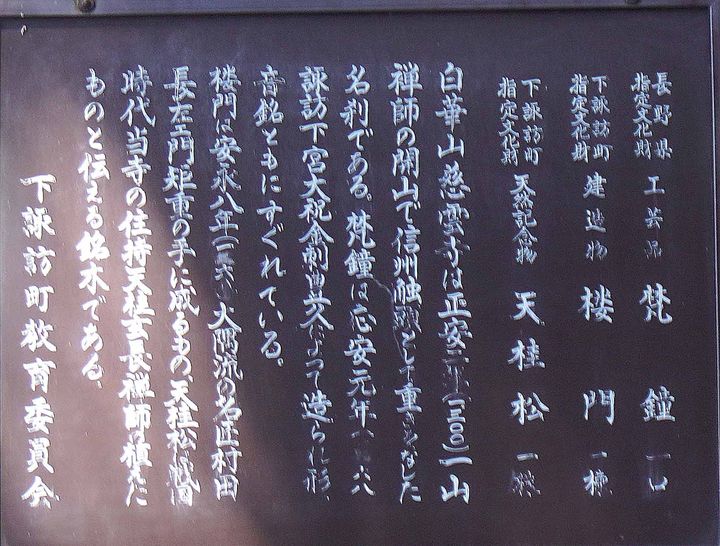 長野県指定文化財 工芸品 梵鐘 一口
下諏訪町指定文化財 建造物 楼門 一棟
下諏訪町指定文化財 天然記念物 天桂松 一樹
白華山慈雲寺は正安二年(一三〇〇)一山
禅師の開山で信州触頭として重きをなした
名刹である。梵鐘は応安元年 六八
諏訪下宮大祝金刺豊久によって造られ形、
音銘ともにすぐれている。
楼門は安永八年 大隅流の名匠村田
長左エ門矩重の手に成るもの天桂松は戦国
時代当寺の住持天桂玄長禅師の植えた
ものと伝える銘木である。
下諏訪町教育委員会